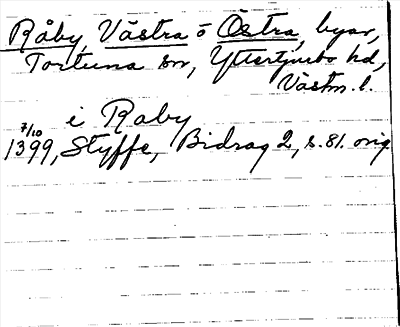 Råby, Västra o Östra, byar,
Tortuna sn, Yttertjurbo hd,
Västm. l.
i Raby
7/10
1399, Styffe, Bidrag 2, s. 81. orig